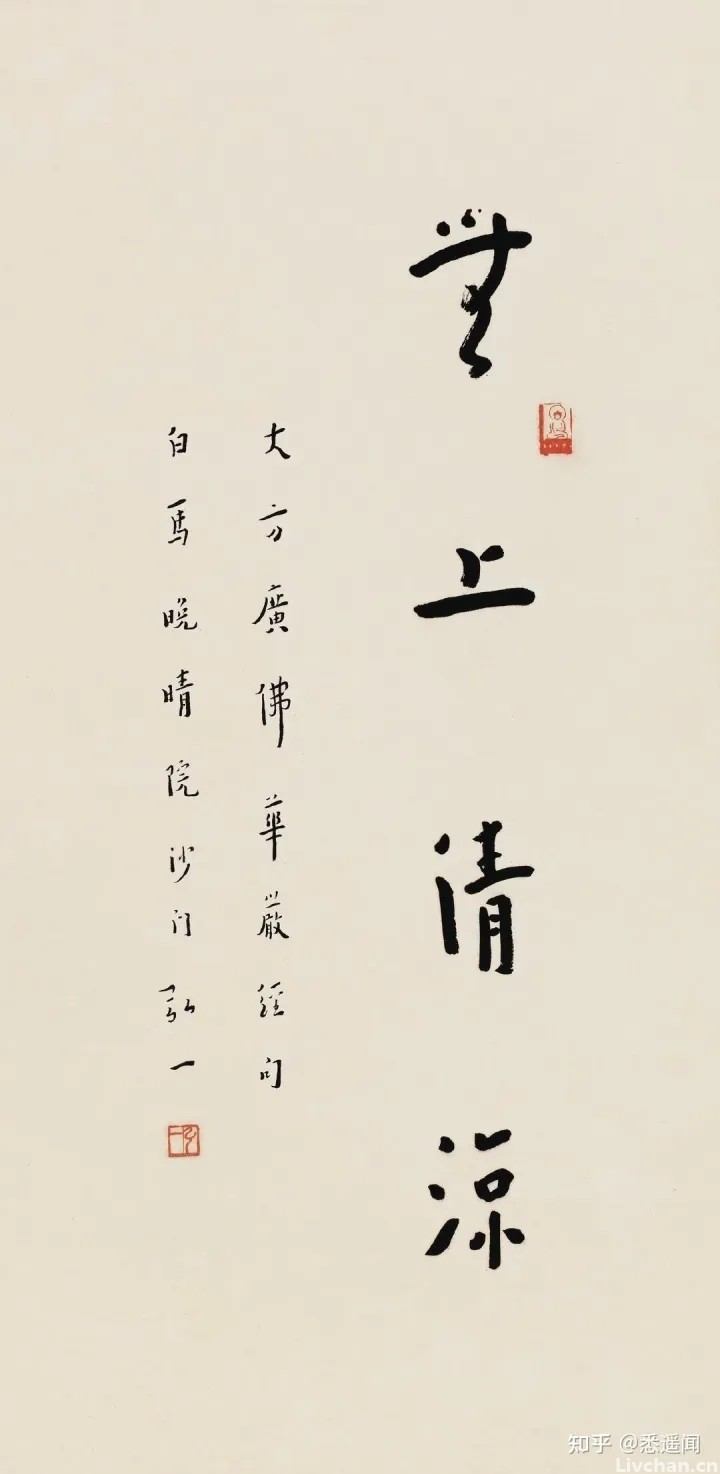 無上清涼
大方廣佛華嚴經句
白馬晚晴院沙门弘一
知乎 @悉遥闻
Livchan.cn